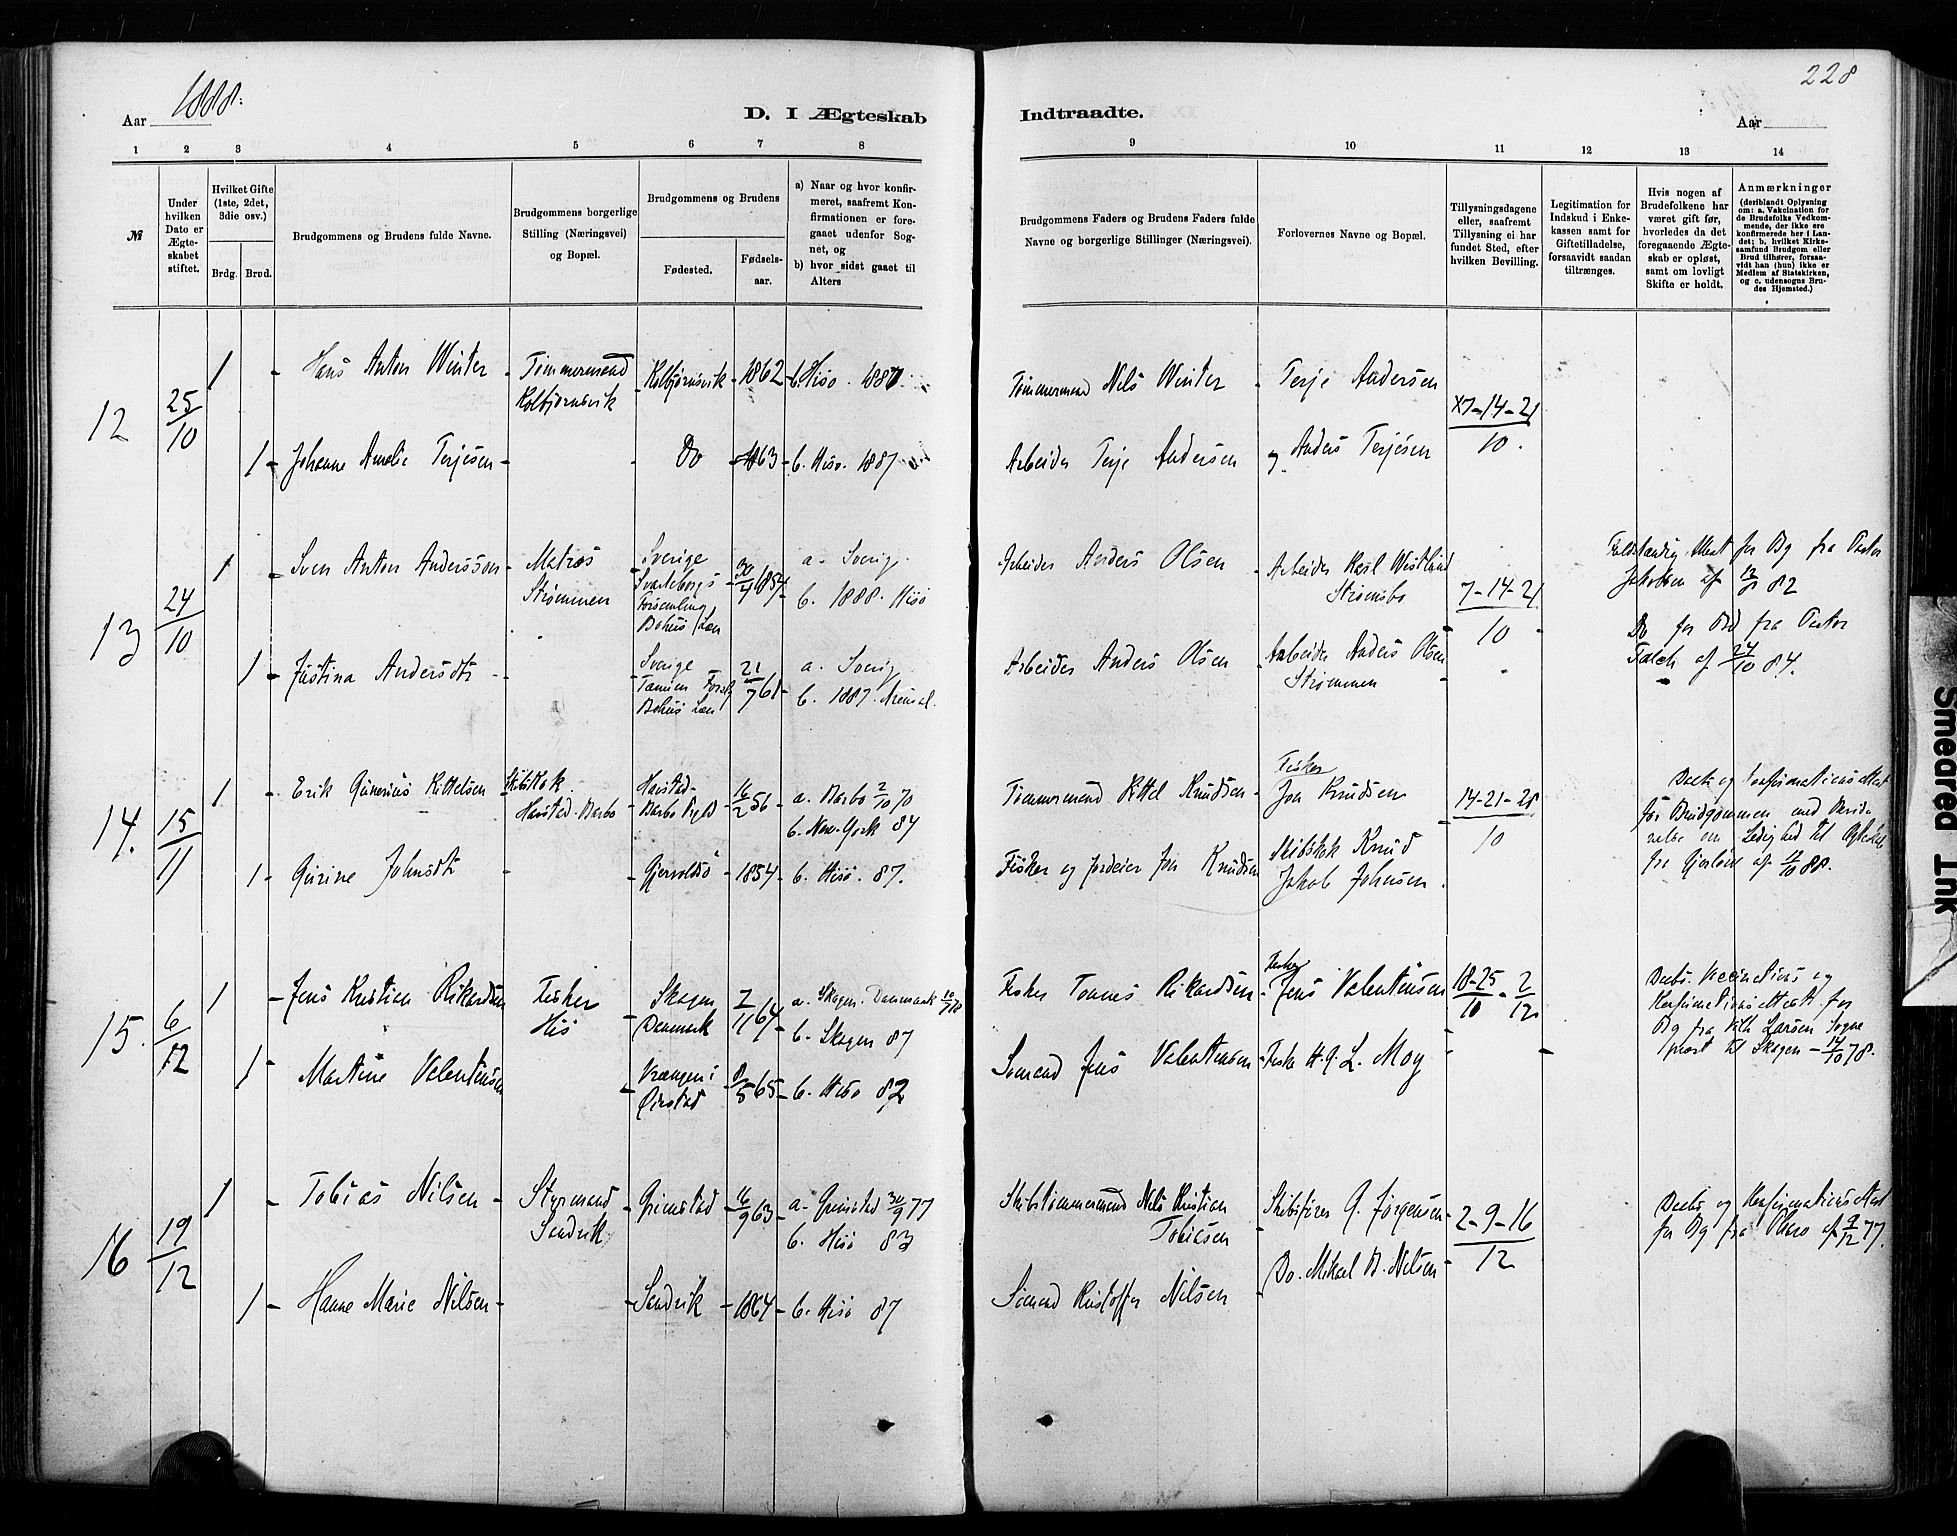 228
Aar 1888.
D. I Ægteskab
Indtraadte.
Aar
1 2 3 4 5 6 7 8
9 10 11 12 13 14
№
Under hvilken Dato er Ægteskabet stiftet.
Hvilket Gifte (1ste, 2det, 3die osv.)
Brdg. Brud.
Brudgommens og Brudens fulde Navne.
Brudgommens borgerlige Stilling (Næringsvei) og Bopæl.
Brudgommens og Brudens
Fødested.
Fødsels-aar.
a) Naar og hvor konfir-
meret, saafremt Kon-
firmationen er fore-
gaaet udenfor Sog-
net, og
b) hvor sidst gaaet til
Alters
Brudgommens Faders og Brudens Faders fulde
Navne og borgerlige Stillinger (Næringsvei).
Forlovernes Navne og Bopæl.
Tillysningsdagene
eller, saafremt
Tillysning ei har
fundet Sted, efter
hvilken Bevilling.
Legitimation for
Indskud i Enke-
kassen samt for
Giftetilladelse,
forsaavidt saadan
tiltrænges.
Hvis nogen af
Brudefolkene har
været gift før,
hvorledes da det
foregaaende Ægte-
skab er opløst,
samt om lovligt
Skifte er holdt.
Anmærkninger
(deriblandt Oplysning
om: a. Vakcination for
de Brudefolks Vedkom-
mende, der ikke ere
konfirmerede her i Lan-
det; b. hvilket Kirke-
samfund Brudgom eller
Brud tilhører, forsaa-
vidt han (hun) ikke er
Medlem af Statskirken,
og c. udensogns Bru-
des Hjemsted.)
12 25/10
1 - Hans Anton Winter - Tømmermand Kolbjørnsvik - Kolbjørnsvik - 1862 - b. Hisø. 1887.
Tømmermand Nils Winter - Terje Andersen
7-14-21/10.
1 - Johanne Amalie Terjesen - Do - 1863 - b. Hisø. 1887
Arbeider Terje Andersen - og Anders Terjesen
13 24/10
1 - Sven Anton Andersson - Matros Strømmen
Sverige Svarteborgs Forsamling Bohus Læn
30/4 1857 a. Sverig. b. 1888. Hisø
Arbeider Anders Olsen - Arbeider Karl Westlund Strømsbo
7-14-21/10
Fuldstændig Attest for Bg fra Pastor
Jakobsen af 82
Do for Brd fra Pastor
Falch af 24/10 84.
1 - Justina Andersdtr -
Sverige Tanum Bohus Læn
21/7 61 a. Sverig b. 1887. Arendal.
Arbeider Anders Olsen - Arbeider Anders Olsen Strømmen
14. 15/11
1 - Erik Gunerius Kittelsen - Skibskok Harstad-Barbo
Harstad-Barbo
16/2 56 - a. Barbo 2/10 70
b. New-York 87
Tømmermand Kittel Knudsen - Fisker Jon Knudsen
14-21-28/10
Daabs og Konfirmationsattest
for Brudgommen med
om Ledighed til Ægteskab
fra af 88.
1 - Gurine Johnsdtr - Gjervoldsø - 1854 - b. Hisø. 87.
Fisker og Jordeier Jon Knudsen - Skibskok Knud
Jakob Johnsen.
15. 6/12
1 - Jens Kristian Rikardsen Fisker Hisø
Skagen Danmark
7/11 64 a. Skagen. Danmark 78
b. Skagen 87
Fisker Tomas Rikardsen - Fisker Jens Valentinsen
18-25/10 - 2/12
Daabs. Vaccinations og
Konfirmationsattest for
Bg fra Vilh Larsen Sogne
præst til Skagen - 14/10 78.
1 - Martine Valentinsen
Vrangen i Øiestad
8/5 65 - b. Hisø 82
Sømand Jens Valentinsen - Fisker L. Moy
16 19/12
1 - Tobias Nilsen - Styrmand Sandvik - Grimstad - 16/9 63 - a. Grimstad 30/9 77
b. Hisø 83
Skibstømmermand Nils Kristian Tobiasen
Skibsfører G. Jørgensen - 2-9-16/12
Daabs og Konfirmationsattest
for Bg fra af 9/12 77.
1 - Hanne Marie Nilsen - Sandvik - 1864 - b. Hisø 87
Sømand Kristoffer Nilsen - Do. Mikael B. Nilsen -
Smeared Ink